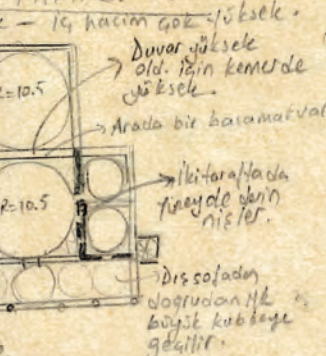 – iç hacim çok yüksek.
Duvar yüksek
old. için kemerde
yüksek.
R=10.5
Arada bir basamak var
R=10.5
İki tarafta da
derin
nişler.
Dış sofadan
doğrudan ilk
büyük kubbeye
geçilir.